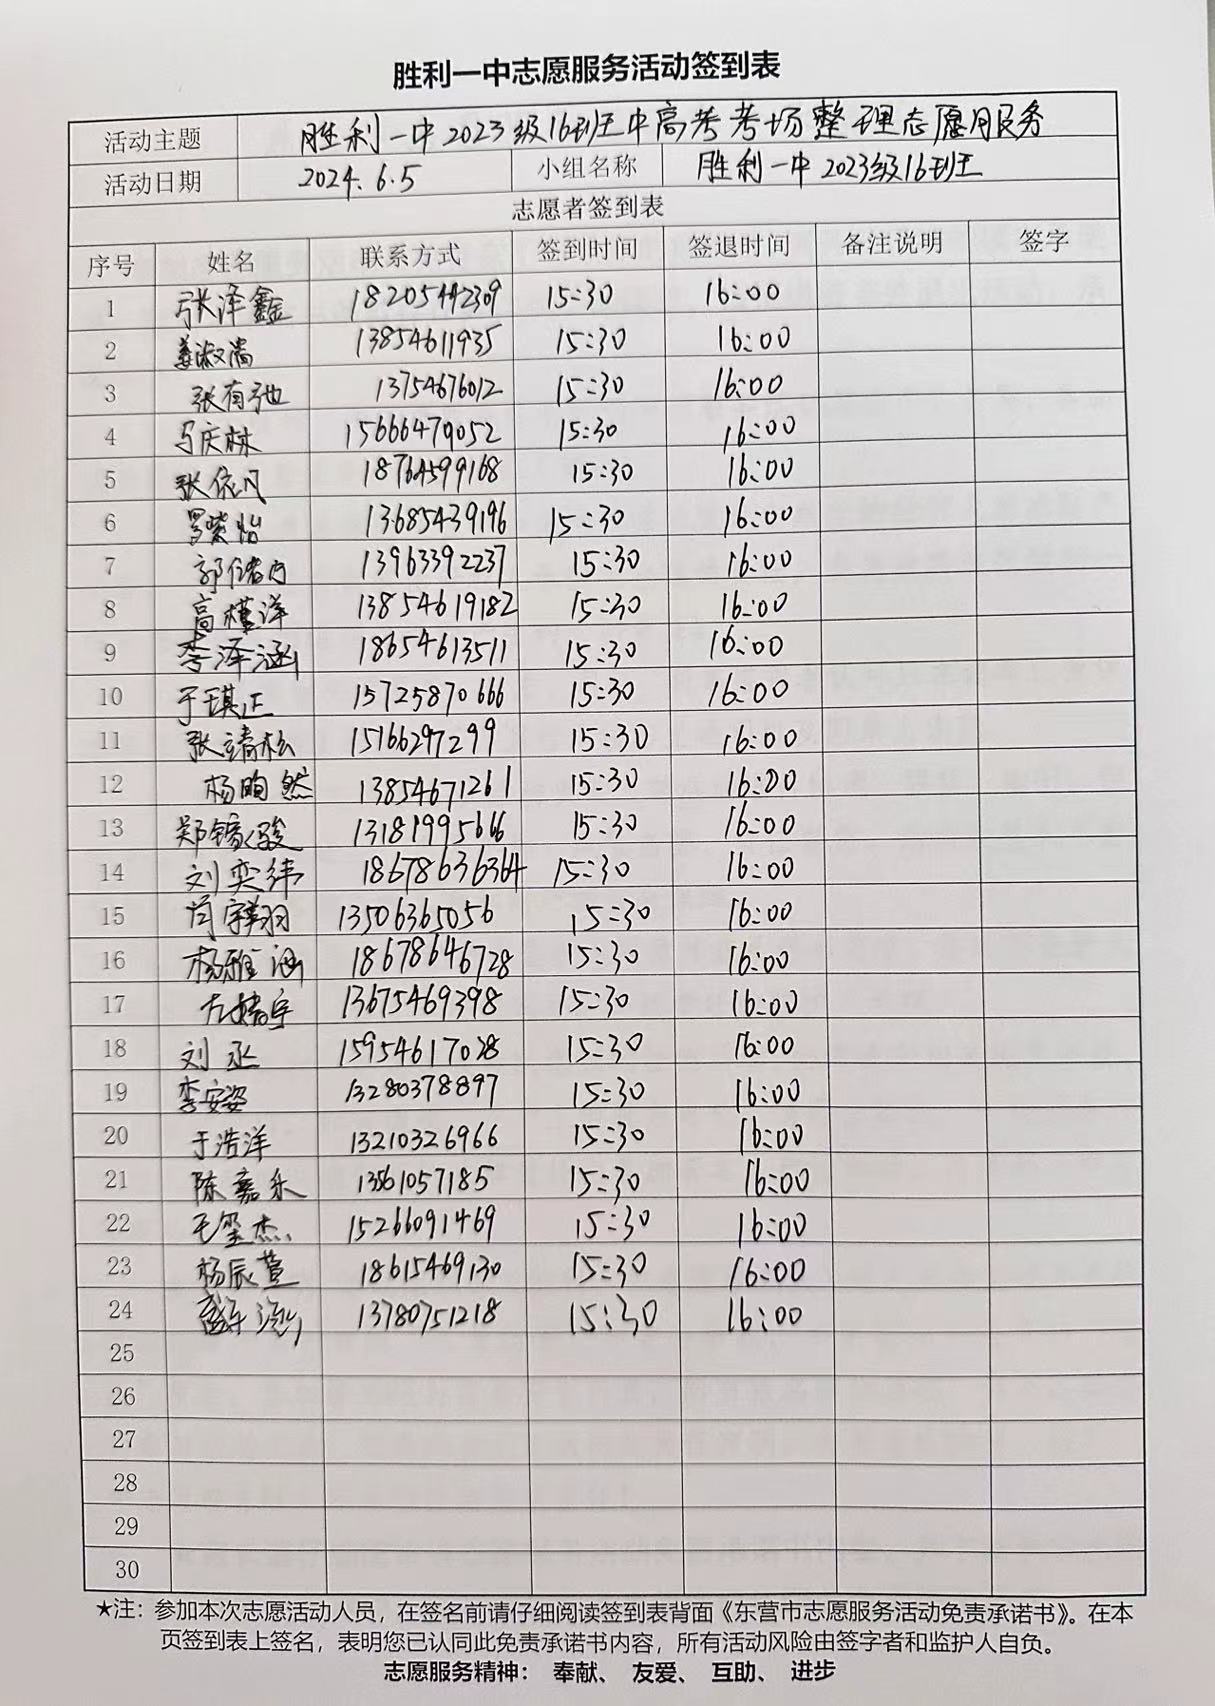 胜利一中志愿服务活动签到表
活动主题 胜利一中2023级16班中高考考场整理志愿服务
活动日期 2024.6.5 小组名称 胜利一中2023级16班
志愿者签到表
序号 姓名 联系方式 签到时间 签退时间 备注说明 签字
1 张泽鑫 18205442309 15:30 16:00
2 姜淑涵 13854611935 15:30 16:00
3 张有弛 13754676012 15:30 16:00
4 马庆林 15666479052 15:30 16:00
5 张依凡 18764599168 15:30 16:00
6 罗紫怡 13685439196 15:30 16:00
7 13963392237 15:30 16:00
8 高槿洋 13854619182 15:30 16:00
9 李泽涵 18654613511 15:30 16:00
10 于琪正 15725870666 15:30 16:00
11 张靖松 15166297299 15:30 16:00
12 杨昫然 13854671261 15:30 16:00
13 13181995666 15:30 16:00
14 刘奕纬 18678636364 15:30 16:00
15 13506365056 15:30 16:00
16 杨雅涵 18678646728 15:30 16:00
17 13675469398 15:30 16:00
18 刘丞 15954617028 15:30 16:00
19 李安姿 13280378897 15:30 16:00
20 于浩洋 13210326966 15:30 16:00
21 陈嘉乐 13561057185 15:30 16:00
22 毛玺杰 15266091469 15:30 16:00
23 杨辰萱 18615469130 15:30 16:00
24 13780751218 15:30 16:00
25
26
27
28
29
30
★注：参加本次志愿活动人员，在签名前请仔细阅读签到表背面《东营市志愿服务活动免责承诺书》。在本
页签到表上签名，表明您已认同此免责承诺书内容，所有活动风险由签字者和监护人自负。
志愿服务精神： 奉献、 友爱、 互助、 进步